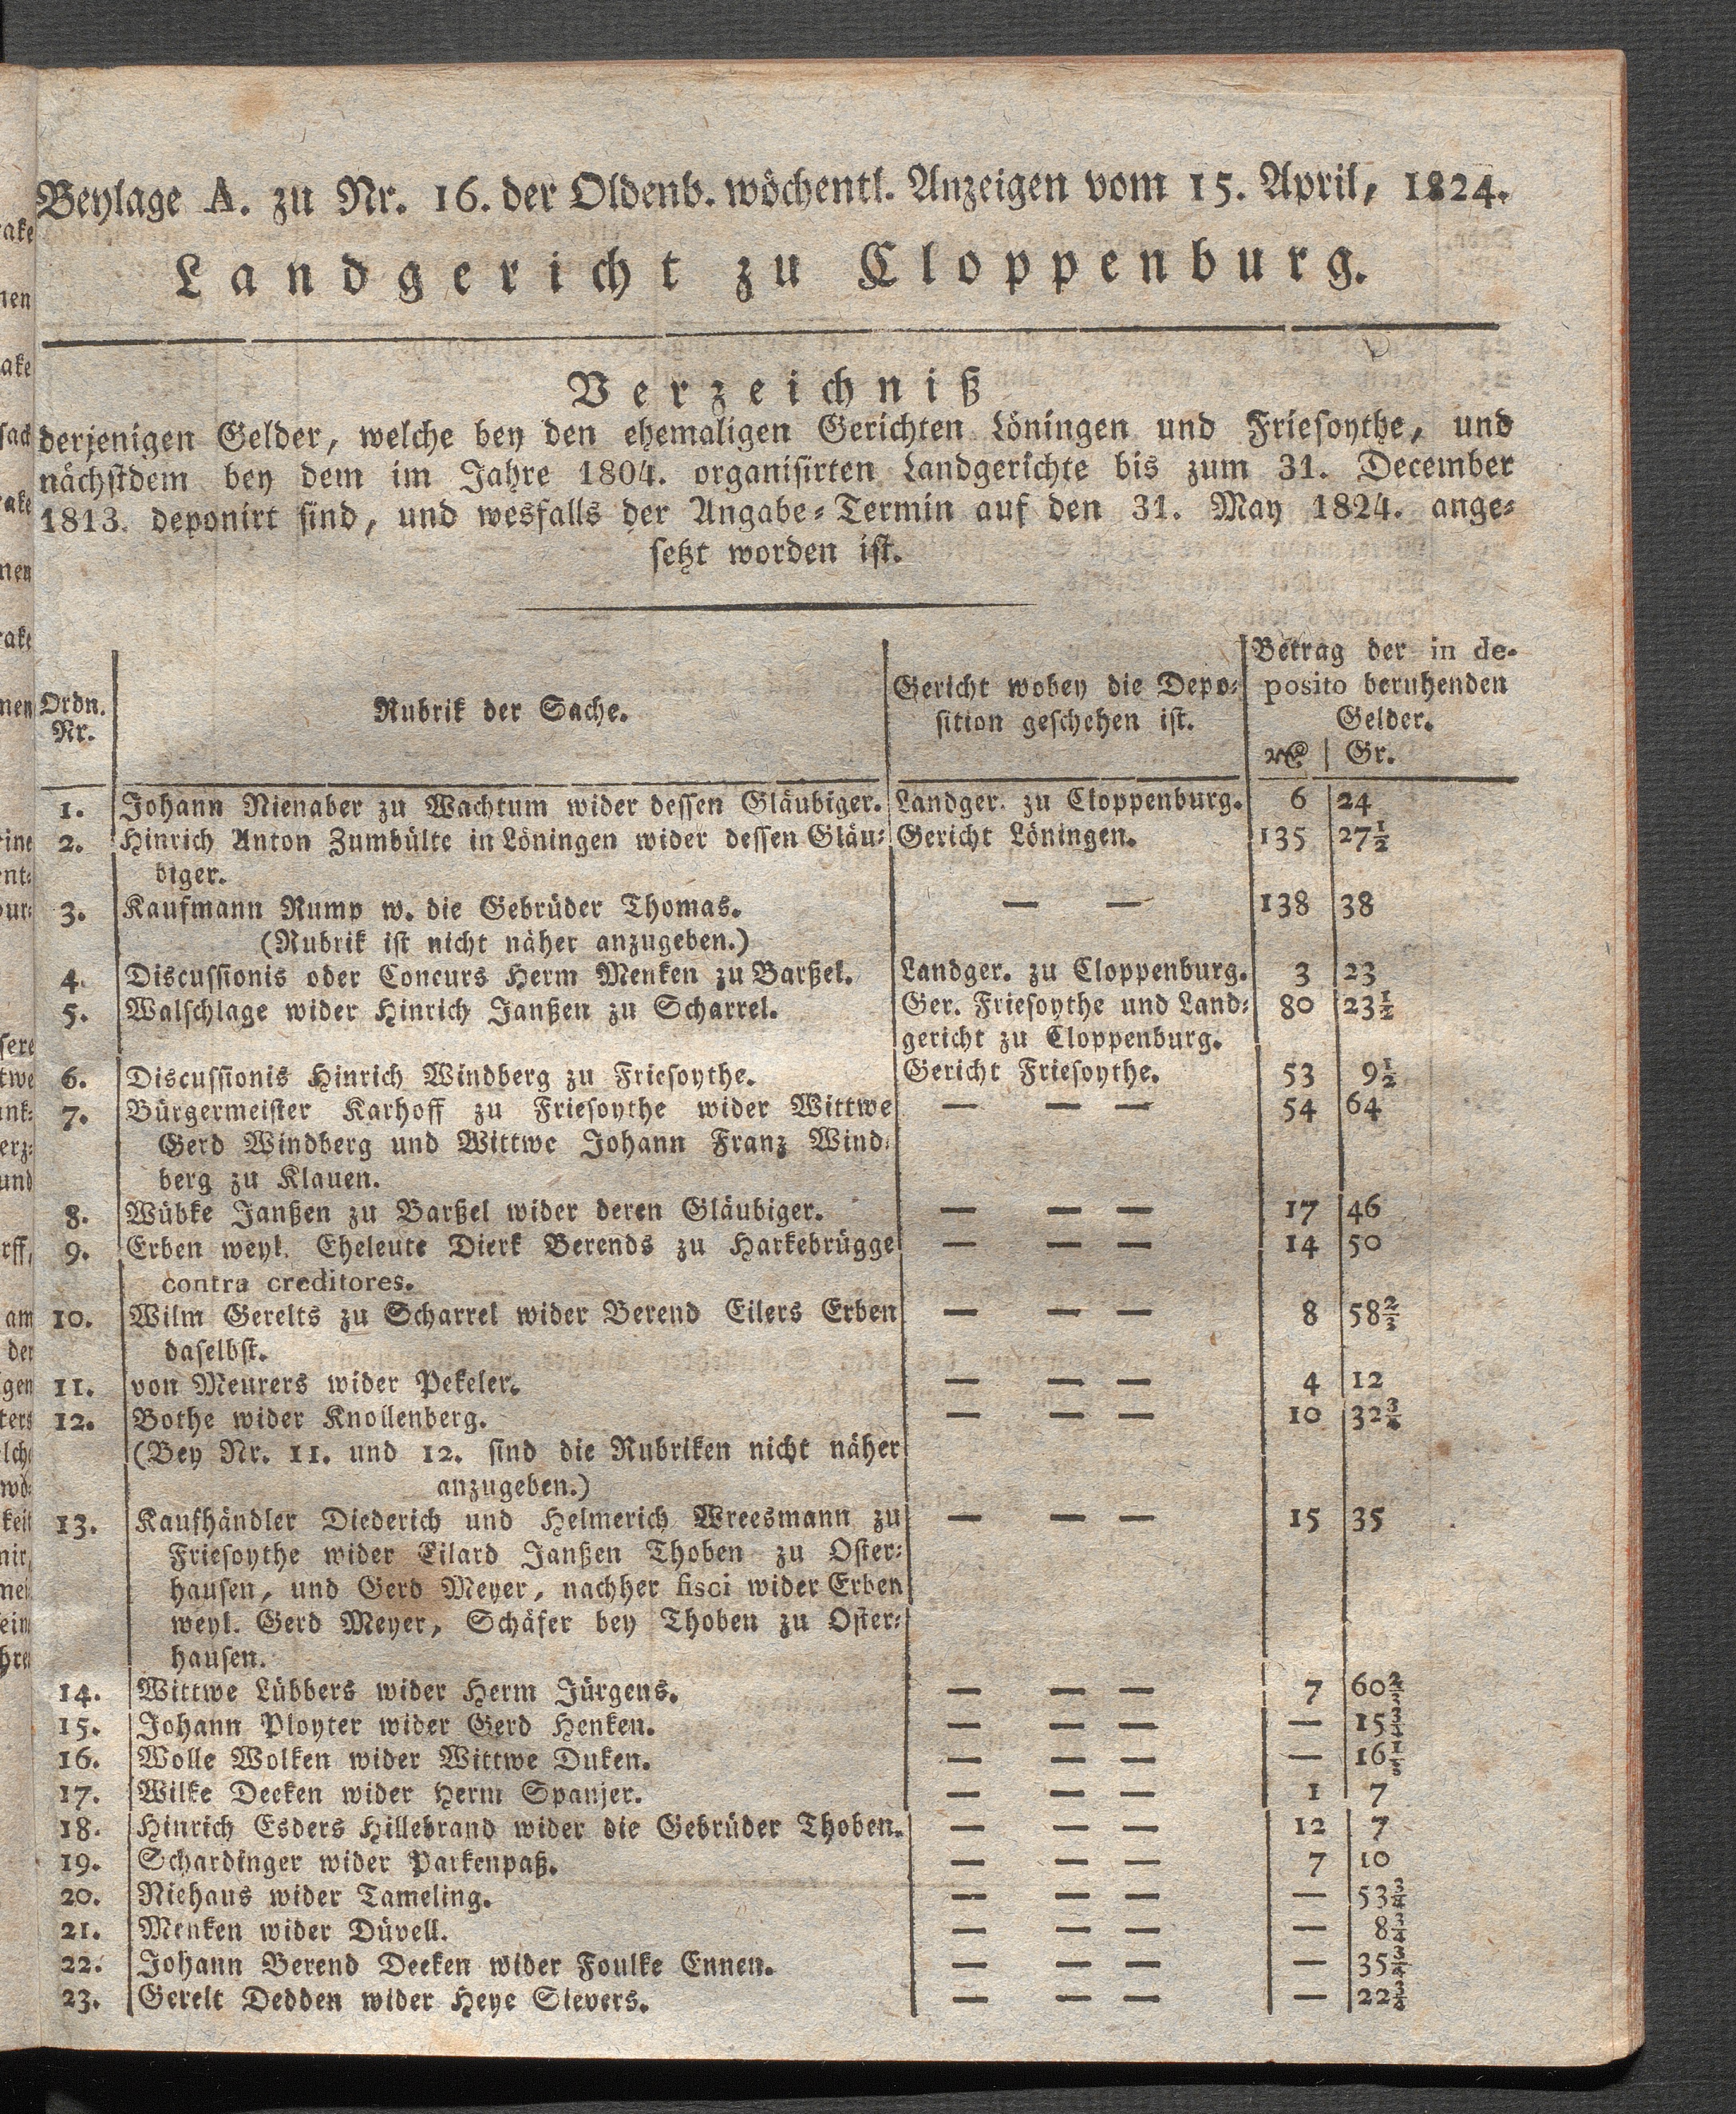 Beylage A. zu Nr. 16. der Oldenb. wöchentl. Anzeigen vom 15. April, 1824.
Landgericht zu Cloppenburg.
Verzeichniß
derjenigen Gelder, welche bey den ehemaligen Gerichten Löningen und Friesoythe, und
nächstdem bey dem im Jahre 1804. organisirten Landgerichte bis zum 31. December
1813. deponirt sind, und wesfalls der Angabe-Termin auf den 31. May 1824. ange-
setzt worden ist.
Ordn. Nr. | Rubrik der Sache. | Gericht wobey die Depo- sition geschehen ist. | Betrag der in de- posito beruhenden Gelder.
Gr.
1. Johann Nienaber zu Wachtum wider dessen Gläubiger. Landger. zu Cloppenburg. 6 24
2. Hinrich Anton Zumbülte in Löningen wider dessen Gläu- Gericht Löningen. 135 27½
biger.
3. Kaufmann Rump w. die Gebrüder Thomas. — — 138 38
(Rubrik ist nicht näher anzugeben.)
4. Discussionis oder Concurs Herm Menken zu Barßel. Landger. zu Cloppenburg. 3 23
5. Walschlage wider Hinrich Janßen zu Scharrel. Ger. Friesoythe und Land- 80 23½
gericht zu Cloppenburg.
6. Discussionis Hinrich Windberg zu Friesoythe. Gericht Friesoythe. 53 9½
7. Bürgermeister Karhoff zu Friesoythe wider Wittwe — — — 54 64
Gerd Windberg und Wittwe Johann Franz Wind-
berg zu Klauen.
8. Wübke Janßen zu Barßel wider deren Gläubiger. — — — 17 46
9. Erben weyl. Eheleute Dierk Berends zu Harkebrügge — — — 14 50
contra creditores.
10. Wilm Gerelts zu Scharrel wider Berend Eilers Erben — — — 8 58⅔
daselbst.
11. von Meurers wider Pekeler. — — — 4 12
12. Bothe wider Knollenberg. — — — 10 32¾
(Bey Nr. 11. und 12. sind die Rubriken nicht näher
anzugeben.)
13. Kaufhändler Diederich und Helmerich Wreesmann zu — — — 15 35
Friesoythe wider Eilard Janßen Thoben zu Oster-
hausen, und Gerd Meyer, nachher fisci wider Erben
weyl. Gerd Meyer, Schäfer bey Thoben zu Oster-
hausen.
14. Wittwe Lübbers wider Herm Jürgens. — — — 7 60⅔
15. Johann Ployter wider Gerd Henken. — — — — 15¾
16. Wolle Wolken wider Wittwe Duken. — — — — 16
17. Wilke Deeken wider Herm Spanjer. — — — 1 7
18. Hinrich Esders Hillebrand wider die Gebrüder Thoben. — — — 12 7
19. Schardinger wider Parkenpaß. — — — 7 10
20. Niehaus wider Tameling. — — — — 53¾
21. Menken wider Düvell. — — — — 8¾
22. Johann Berend Deeken wider Foulke Ennen. — — — — 35¾
23. Gerelt Dedden wider Heye Sievers. — — — — 22¾